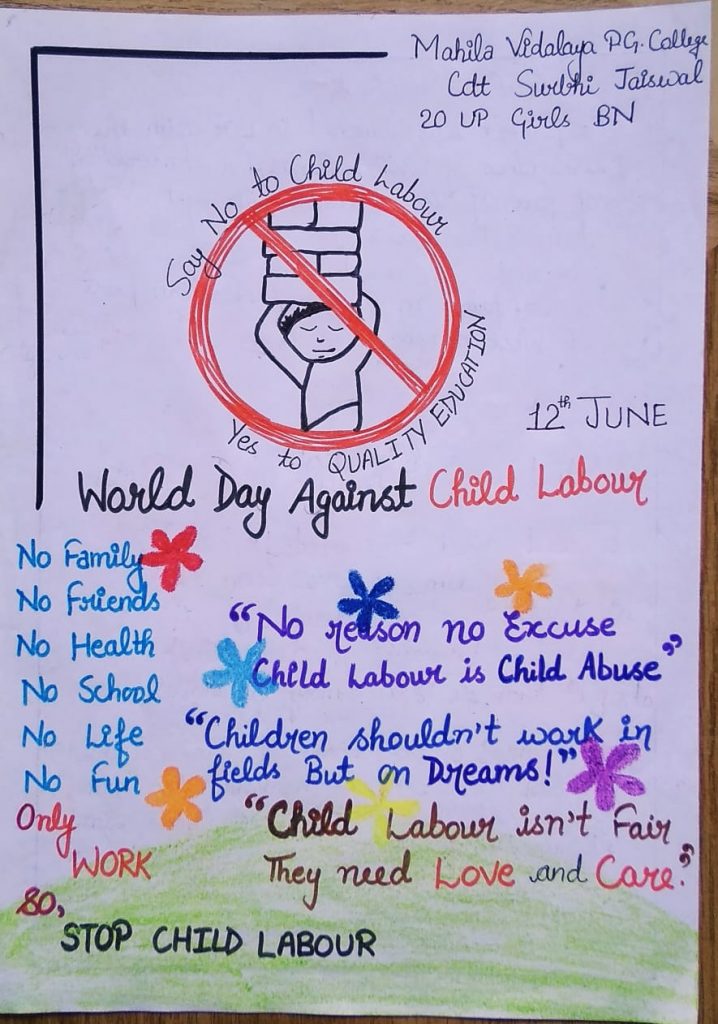 Mahila Vidalaya P.G. College
Cdt Surbhi Jaiswal
20 UP Girls BN
Say No to Child Labour
Yes to QUALITY EDUCATION
12th JUNE
World Day Against Child Labour
No Family
No Friends
No Health
No School
No Life
No Fun
Only
WORK
"No reason no Excuse
Child Labour is Child Abuse"
"Children shouldn't work in
fields But on Dreams!"
"Child Labour isn't Fair
They need Love and Care."
SO,
STOP CHILD LABOUR